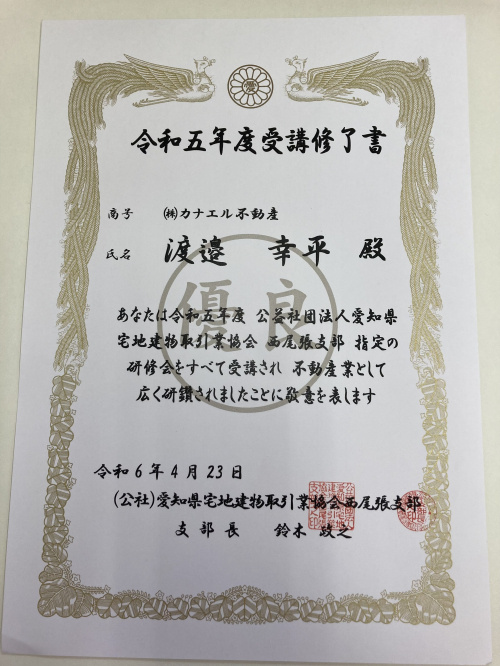 令和五年度受講修了書
商号 ㈱カナエル不動産
氏名 渡邉 幸平 殿
優良
あなたは令和五年度 公益社団法人愛知県
宅地建物取引業協会 西尾張支部 指定の
研修会をすべて受講され 不動産業として
広く研鑽されましたことに敬意を表します
令和6年4月23日
(公社)愛知県宅地建物取引業協会西尾張支部
支部長 鈴木